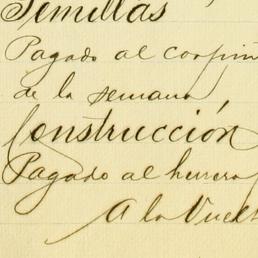 Semillas
Pagado al carpin
de la semana
Construcción
Pagado al herrero
A la Vuelt